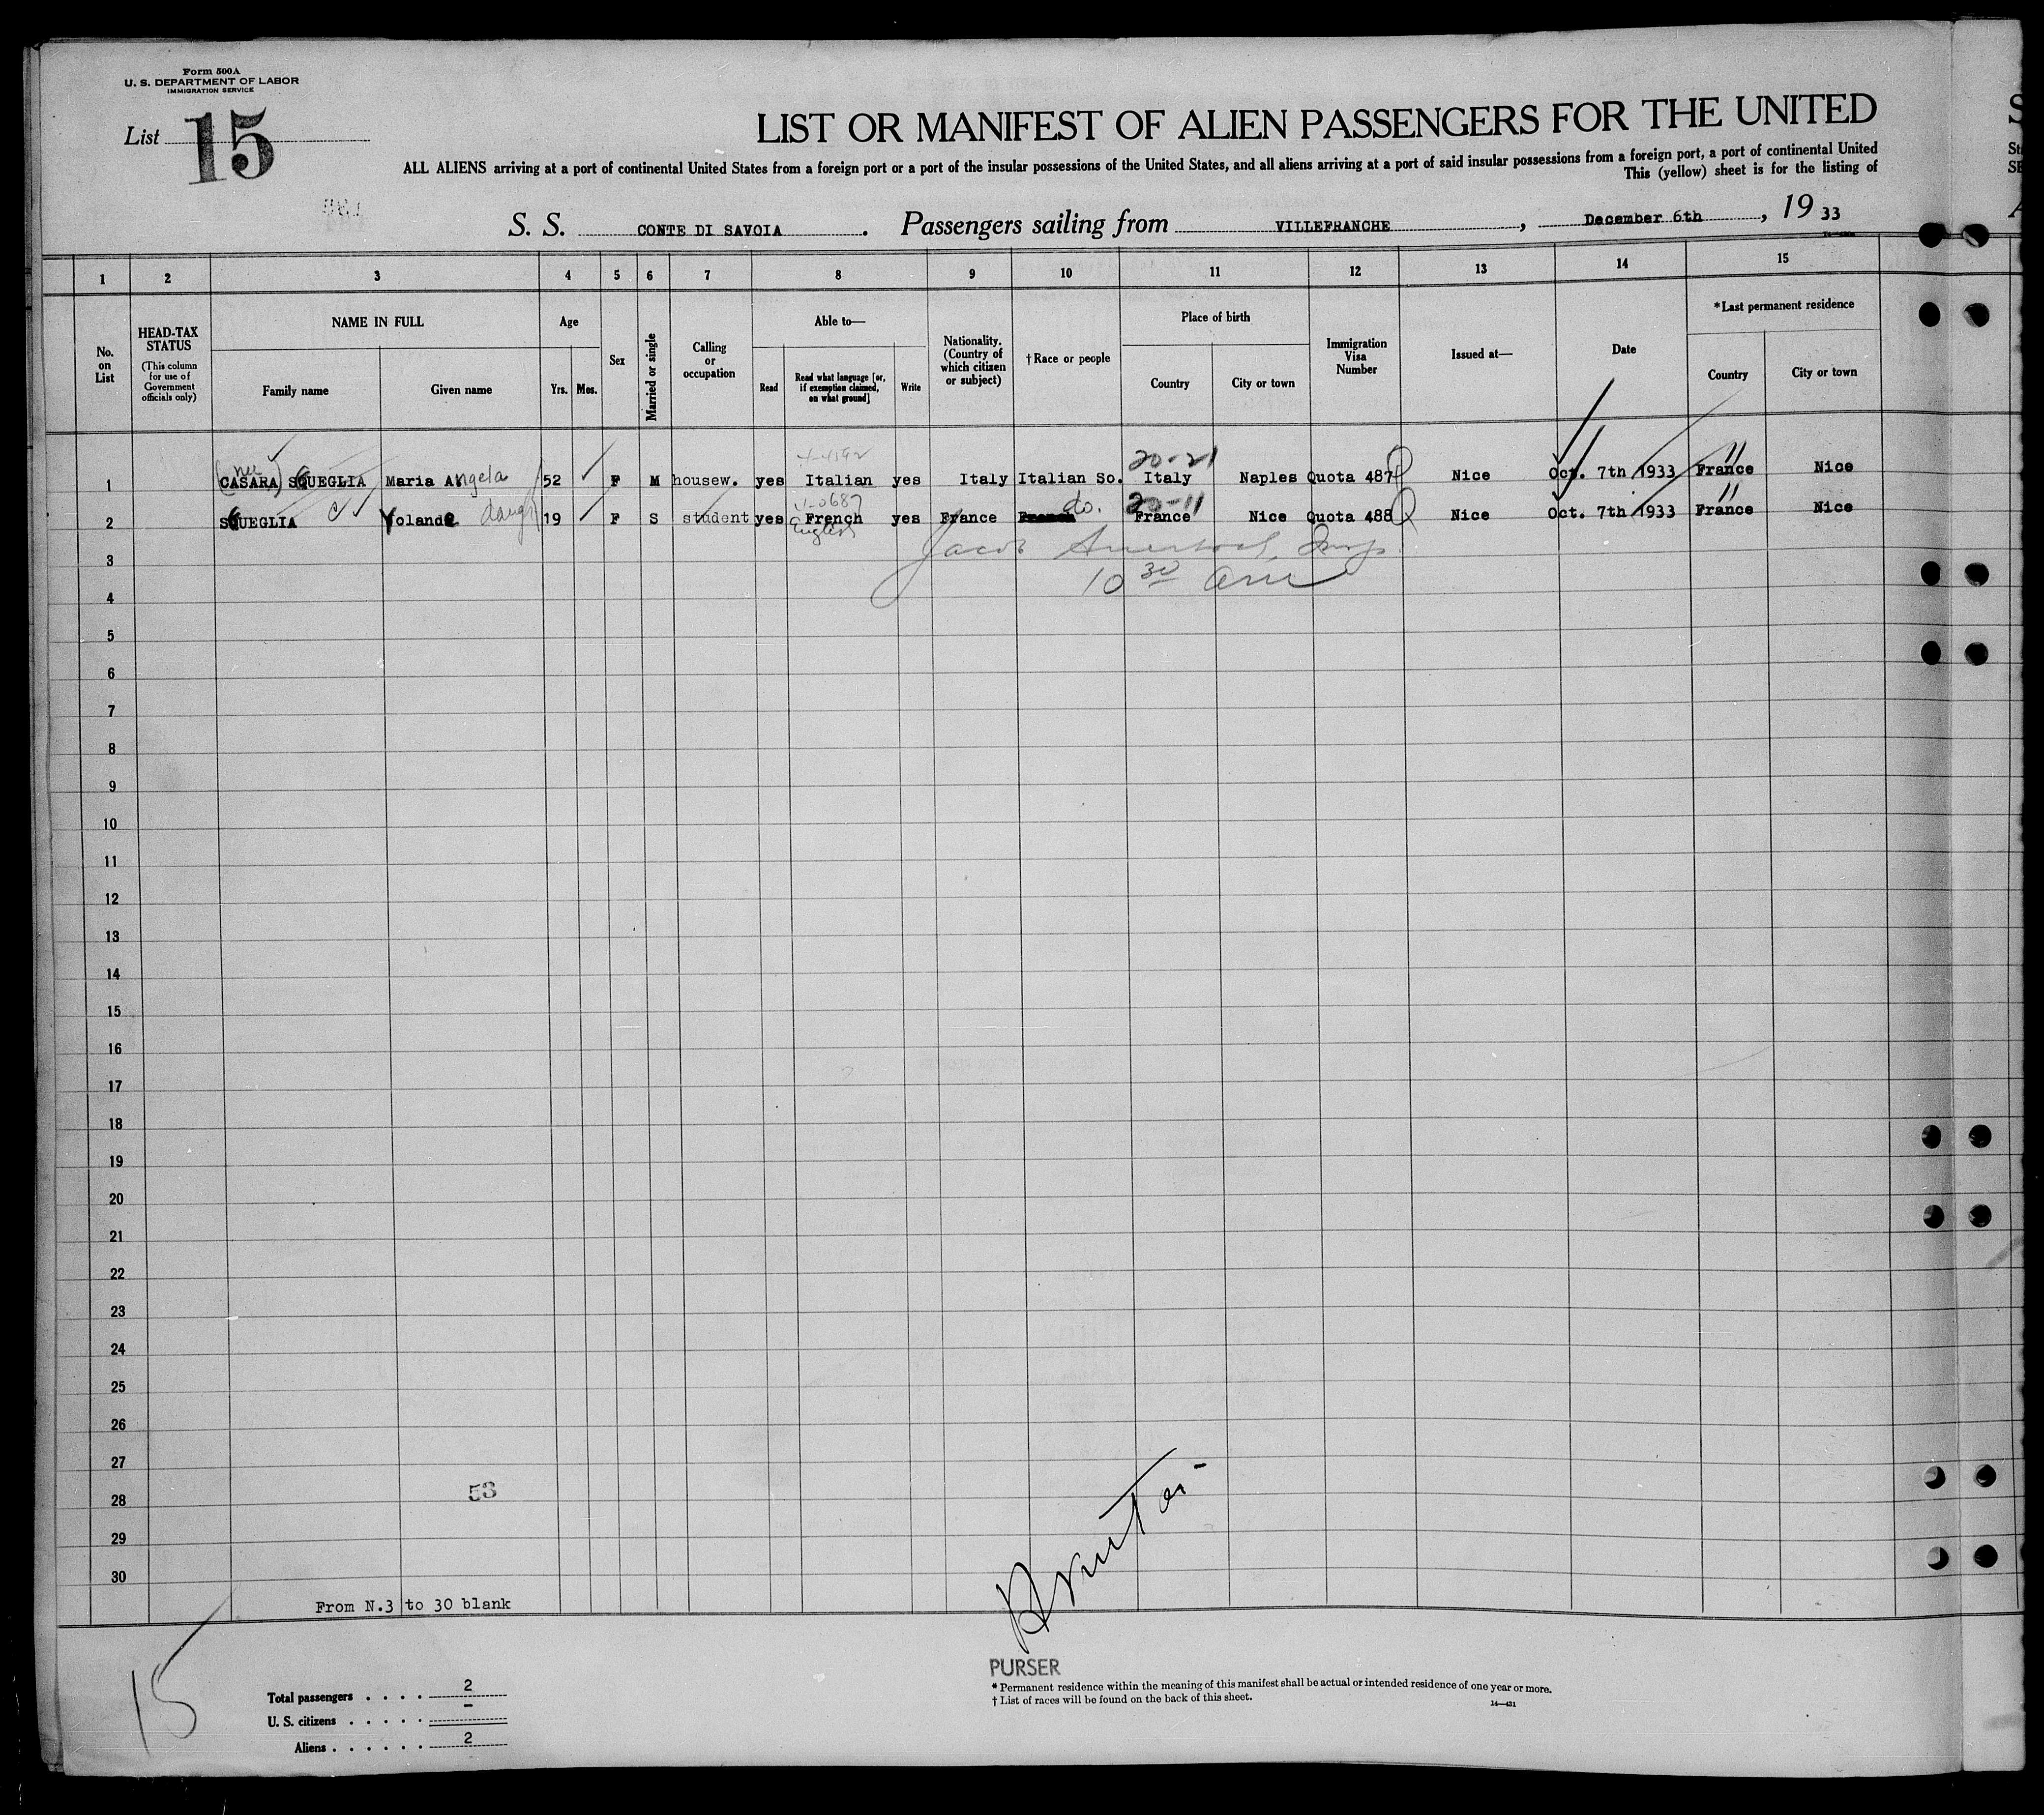 Form 500A
U. S. DEPARTMENT OF LABOR
IMMIGRATION SERVICE
List 15
LIST OR MANIFEST OF ALIEN PASSENGERS FOR THE UNITED
ALL ALIENS arriving at a port of continental United States from a foreign port or a port of the insular possessions of the United States, and all aliens arriving at a port of said insular possessions from a foreign port, a port of continental United
This (yellow) sheet is for the listing of
S. S. CONTE DI SAVOIA. Passengers sailing from VILLEFRANCHE, December 6th, 19 33
1 2 3 4 5 6 7 8 9 10 11 12 13 14 15
No. on List
HEAD-TAX STATUS
(This column for use of Government officials only)
NAME IN FULL
Family name
Given name
Age
Yrs.
Mos.
Sex
Married or single
Calling or occupation
Able to—
Read
Read what language [or, if exemption claimed, on what ground]
Write
Nationality. (Country of which citizen or subject)
†Race or people
Place of birth
Country
City or town
Immigration Visa Number
Issued at—
Date
*Last permanent residence
Country
City or town
20-21 11
1 (nee CASARA) SQUEGLIA Maria Angela 52 F M housew. yes Italian yes Italy Italian So. Italy Naples Quota 487 Nice Oct. 7th 1933 France Nice
do. 20-11 11
2 SQUEGLIA Yolande daugh 19 F S student yes French yes France French France Nice Quota 488 Nice Oct. 7th 1933 France Nice
English
Jacob Insp.
3
10 30 am
4
5
6
7
8
9
10
11
12
13
14
15
16
17
18
19
20
21
22
23
24
25
26
27
53
28
29
30
From N.3 to 30 blank
15
PURSER
* Permanent residence within the meaning of this manifest shall be actual or intended residence of one year or more.
† List of races will be found on the back of this sheet.
14—421
Total passengers . . . . 2
U. S. citizens . . . . . –
Aliens . . . . . . 2